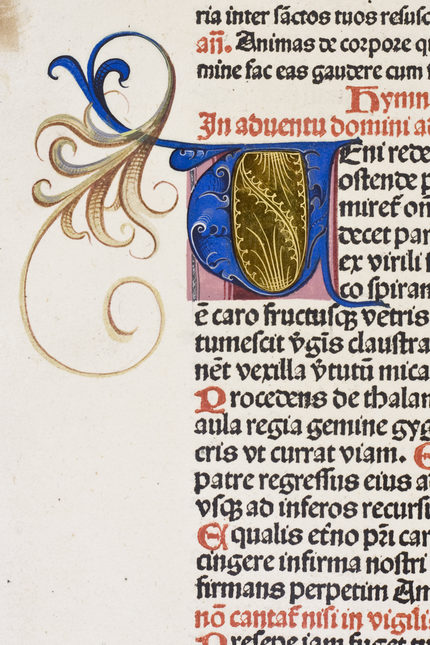 ria inter sāctos tuos resusc
añ. Animas de corpore q
mine fac eas gaudere cum
Hymn
In aduentu domini a
VEni rede
ostende p
miret᷑ om
decet par
ex virili
co spiram
ē caro fructusqꝫ vētris
tumescit v̄gīs claustra
nēt vexilla v̄tutū mica
Procedens de thalam
aula regia gemine gyg
cris vt currat viam. E
patre regressus eius a
vsqꝫ ad inferos recursu
Equalis et̄no pr̄i car
cingere infirma nostri
firmans perpetim Am
nō cantat᷑ nisi in vigili
Presepe iam fulget